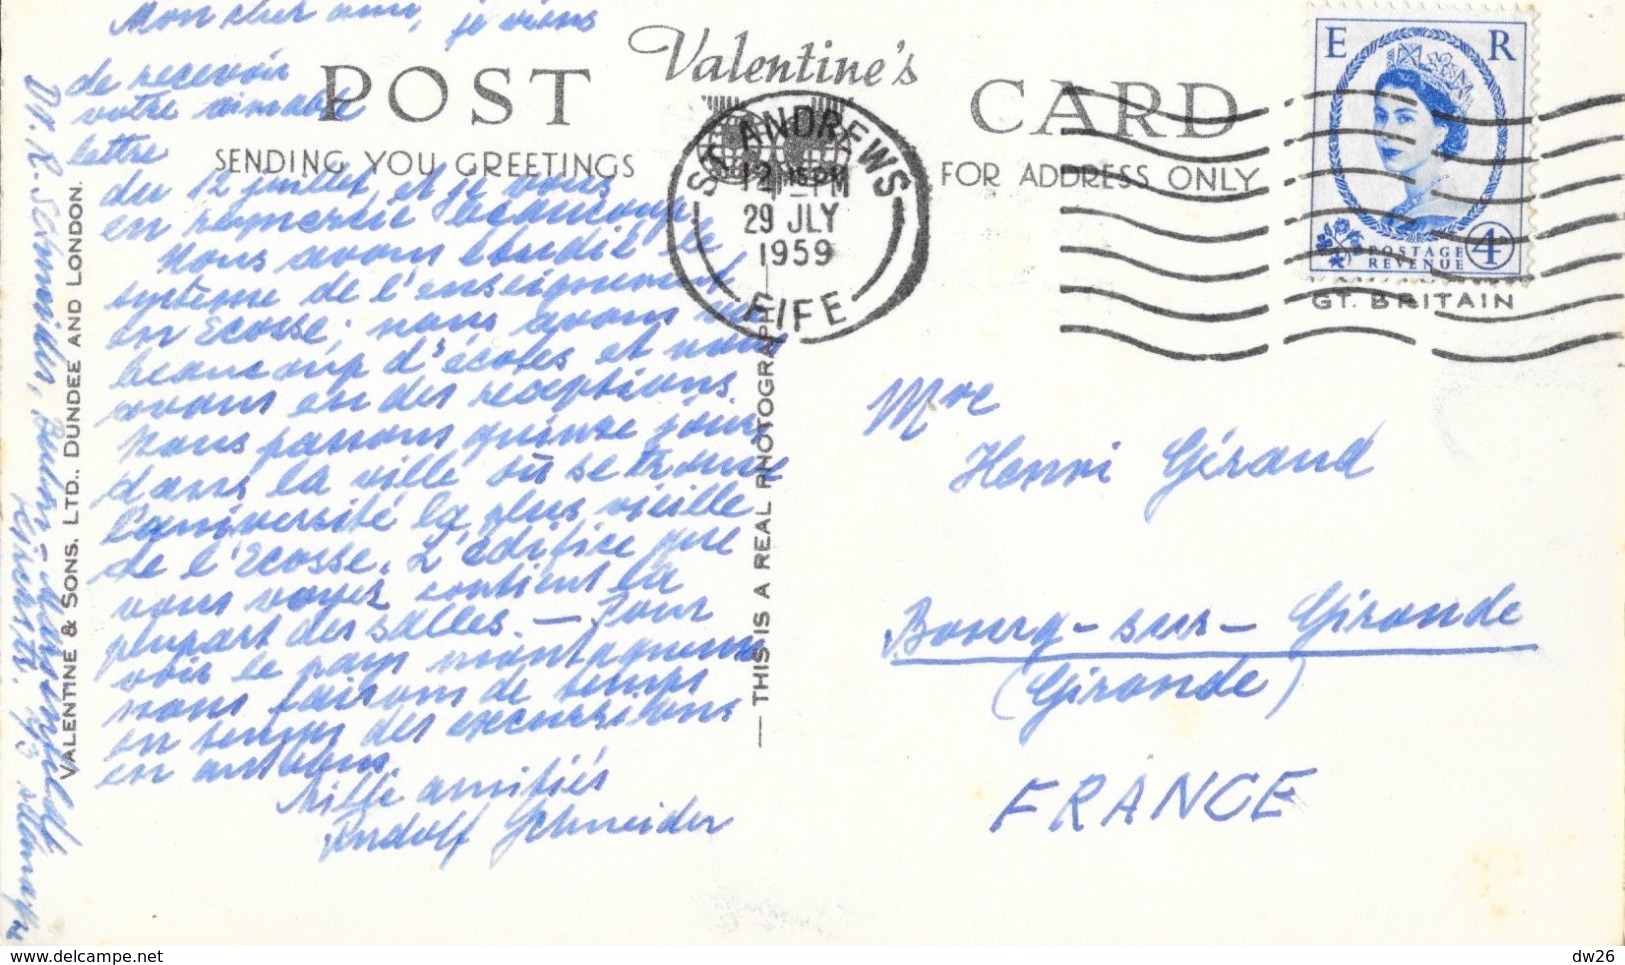 Mon cher ami, je viens
de recevoir
votre aimable
lettre
du 12 juillet et je vous
en remercie beaucoup
Nous avons étudié le
système de l'enseignement
en Ecosse; nous avons vu
beaucoup d'écoles et nous
avons eu des réceptions.
Nous passons quinze jours
dans la ville où se trouve
l'université la plus vieille
de l'Ecosse. L'édifice que
vous voyez contient la
plupart des salles. — Pour
voir le pays montagneux
nous faisons de temps
en temps des excursions
en autobus.
Mille amitiés
Rudolf Schneider
Dr. R. Schneider, Berlin-
VALENTINE & SONS. LTD., DUNDEE AND LONDON.
POST Valentine's CARD
SENDING YOU GREETINGS
FOR ADDRESS ONLY
— THIS IS A REAL PHOTOGRAPH —
ST. ANDREWS
12 15 PM
29 JLY
1959
FIFE
E R
POSTAGE
REVENUE
4D
GT. BRITAIN
Mre
Henri Géraud
Bourg-sur-Gironde
(Gironde)
FRANCE
https://www.delcampe.net
dw26